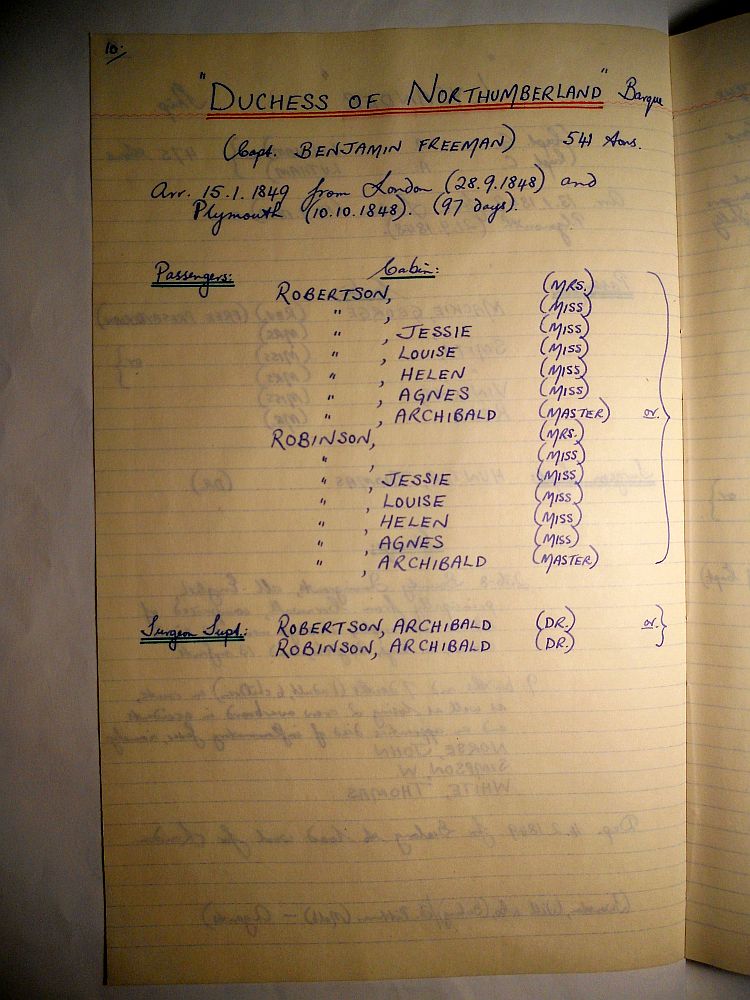 10.
"DUCHESS OF NORTHUMBERLAND" Barque
(Capt. BENJAMIN FREEMAN) 541 tons.
Arr. 15.1.1849 from London (28.9.1848) and
Plymouth (10.10.1848). (97 days).
Passengers: Cabin:
ROBERTSON, (MRS.)
" , (MISS)
" , JESSIE (MISS)
" , LOUISE (MISS)
" , HELEN (MISS)
" , AGNES (MISS)
" , ARCHIBALD (MASTER) or.
ROBINSON, (MRS.)
" , (MISS)
" , JESSIE (MISS)
" , LOUISE (MISS)
" , HELEN (MISS)
" , AGNES (MISS)
" , ARCHIBALD (MASTER)
Surgeon Supt.: ROBERTSON, ARCHIBALD (DR.) or.
ROBINSON, ARCHIBALD (DR.)